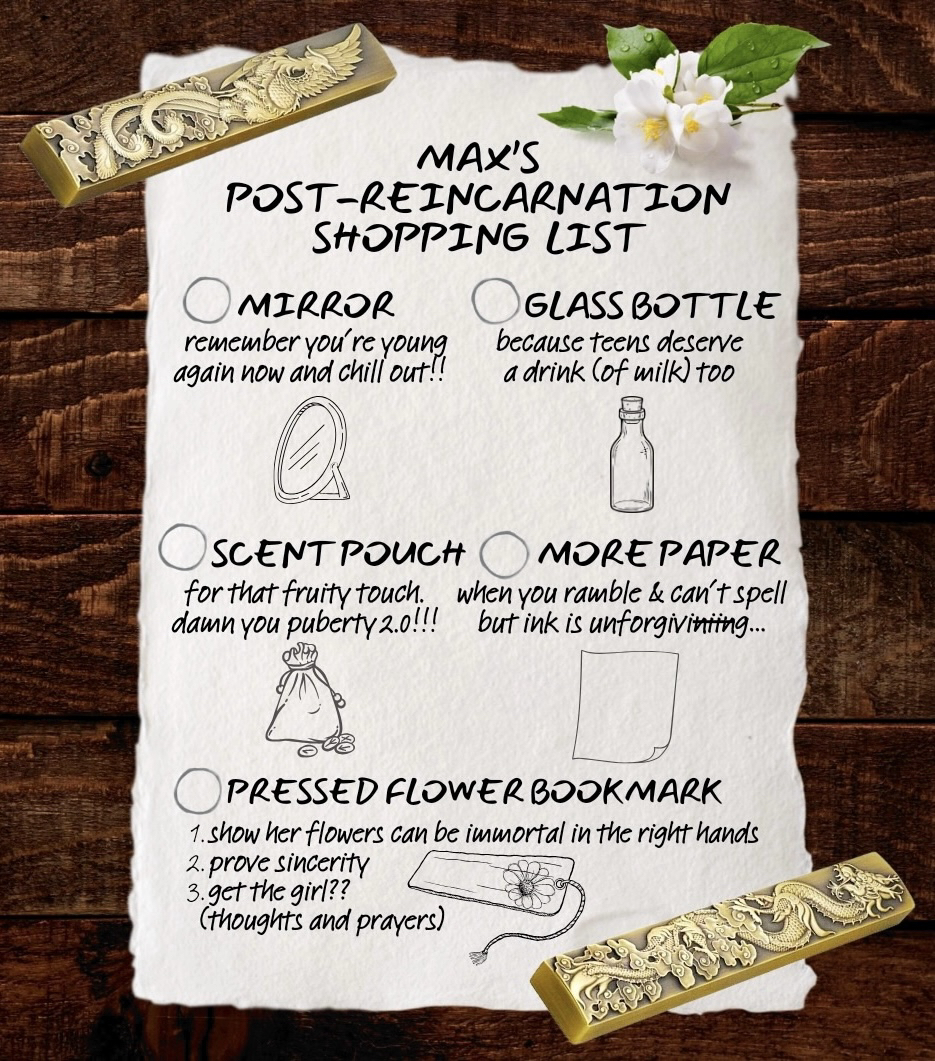 MAX'S
POST-REINCARNATION
SHOPPING LIST
MIRROR
remember you're young
again now and chill out!!
GLASS BOTTLE
because teens deserve
a drink (of milk) too
SCENT POUCH
for that fruity touch.
damn you puberty 2.0!!!
MORE PAPER
when you ramble & can't spell
but ink is unforgiviniing...
PRESSED FLOWER BOOKMARK
1. show her flowers can be immortal in the right hands
2. prove sincerity
3. get the girl??
(thoughts and prayers)